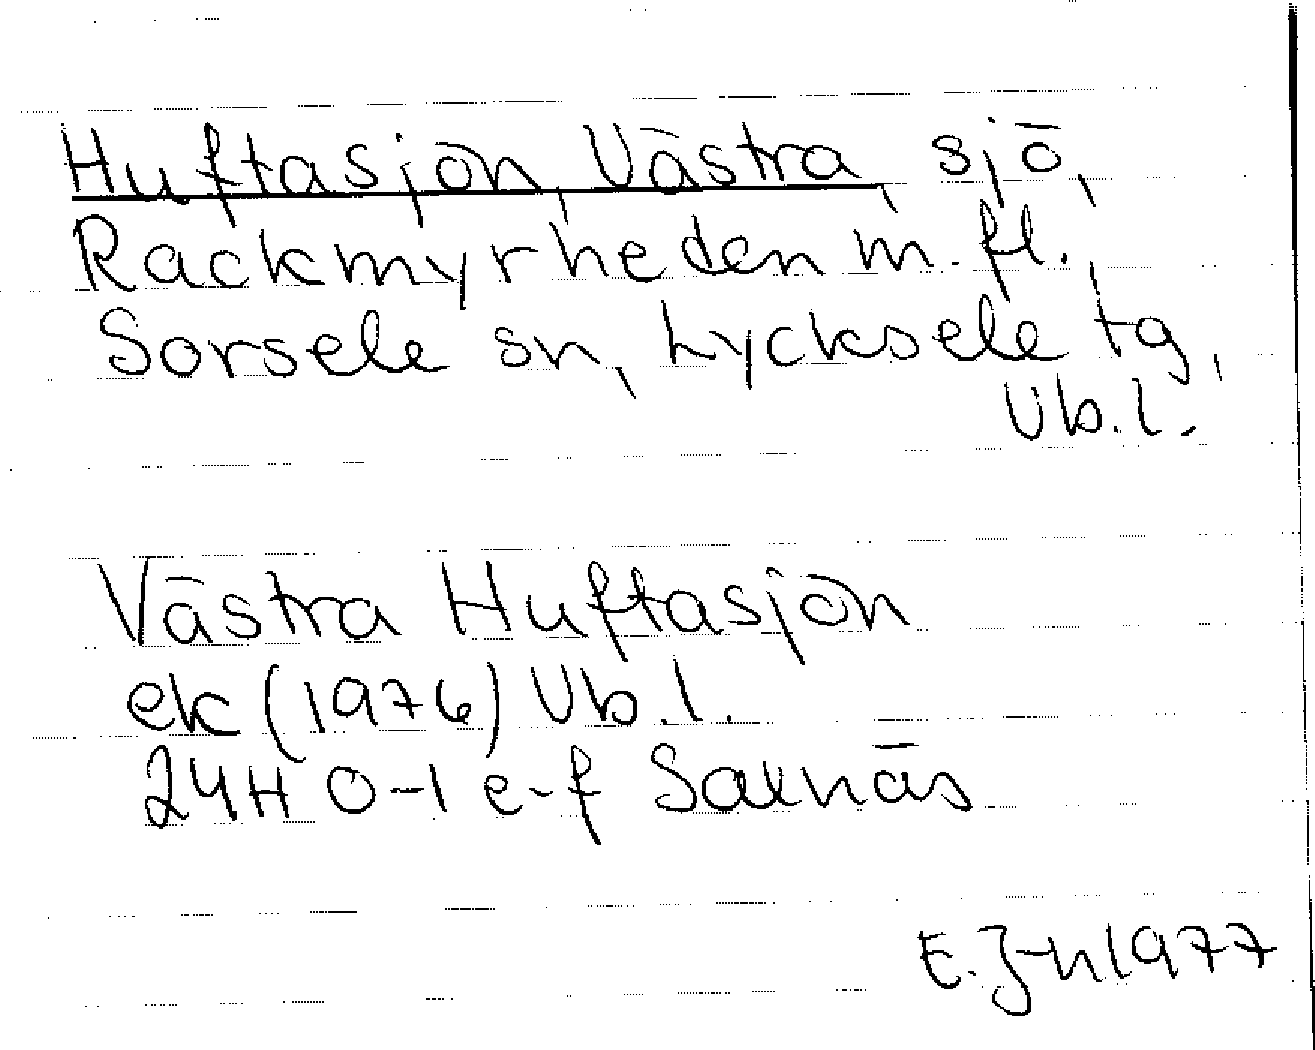 Huftasjön, Västra, sjö,
Rackmyrheden m. fl.
Sorsele sn, Lycksele tg,
Vb.l.
Västra Huftasjön
ek (1976) Vb.l.
24H 0-1 e-f Saxnäs
E.J-n 1977